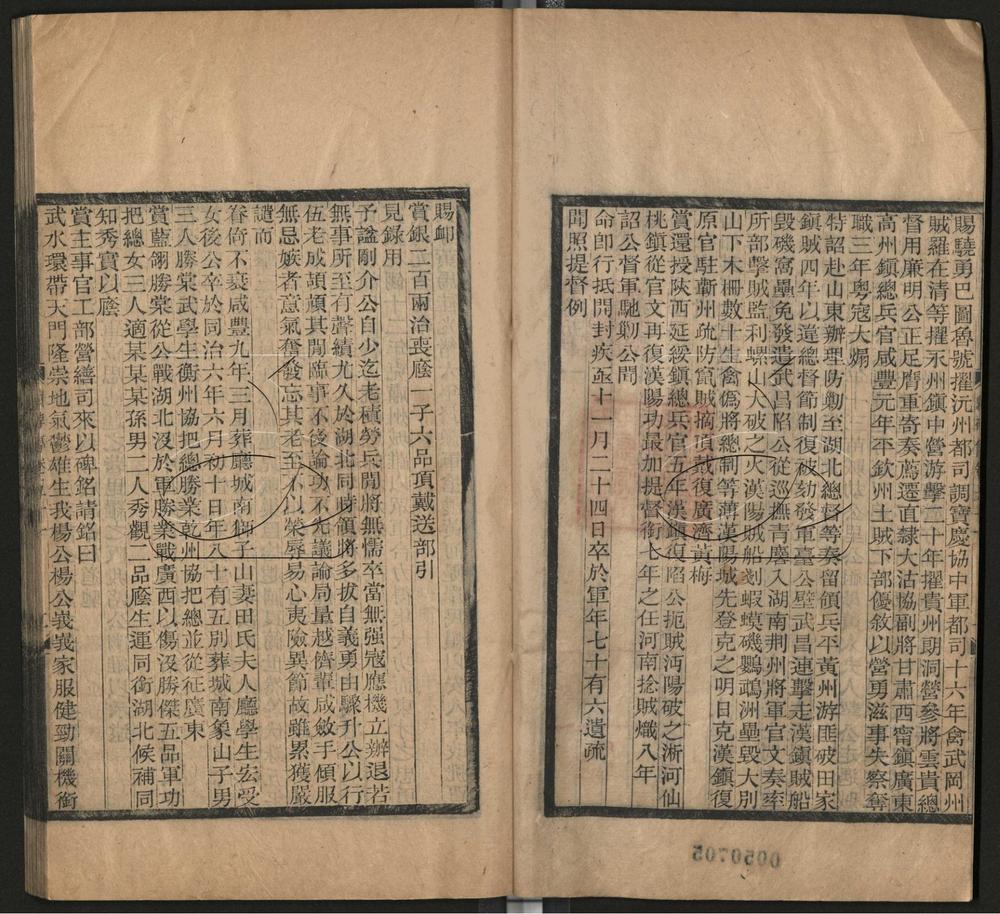 賜驍勇巴圖魯號擢沅州都司調寶慶協中軍都司十六年禽武岡州
賊羅在清等擢永州鎮中營游擊二十年擢貴州朗洞營參將雲貴總
督用廉明公正足膺重寄奏薦遷直隸大沽協副將甘肅西甯鎮廣東
高州鎮總兵官咸豐元年平欽州土賊下部優敘以營勇滋事失察奪
職三年粤寇大熾
特詔赴山東辦理防勦至湖北總督等奏留領兵平黃州游匪破田家
鎮賊四年以違總督節制復被劾發軍臺公壁武昌連擊走漢鎮賊船
毀磯窩壘免發遣武昌陷公從巡撫青麐入湖南荆州將軍官文奏率
所部擊賊監利螺山大破之火漢陽賊船剗蝦蟆磯鸚鵡洲壘毀大別
山下木柵數十生禽僞將總制等薄漢陽城先登克之明日克漢鎮復
原官駐蘄州疏防竄賊摘頂戴復廣濟黃梅
賞還授陝西延綏鎮總兵官五年漢鎮復陷公扼賊沔陽破之淅河仙
桃鎮從官文再復漢陽功最加提督銜七年之任河南捻賊熾入年
詔公督軍馳勦公問
命卽行抵開封疾亟十一月二十四日卒於軍年七十有六遺疏
聞照提督例
賜卹
賞銀二百兩治喪廕一子六品頂戴送部引
見錄用
予諡剛介公自少迄老積勞兵間將無懦卒當無強寇應機立辦退若
無事所至有聲績尤久於湖北同時領將多拔自義勇由驟升公以行
伍老成頡頏其間臨事不後論功不先議論局量越儕輩咸斂手傾服
無忌嫉者意氣奮發忘其老至不以榮辱易心夷險異節故雖累獲嚴
譴而
眷倚不衰咸豐九年三月葬廳城南獅子山妻田氏夫人廳學生宏受
女後公卒於同治六年六月初十日年八十有五別葬城南象山子男
三人勝棠武學生衡州協把總勝業乾州協把總並從征廣東
賞藍翎勝棠從公戰湖北沒於軍勝業戰廣西以傷沒勝傑五品軍功
把總女三人適某某某孫男二人秀觀二品廕生運同銜湖北候補同
知秀實以廕
賞主事官工部營繕司來以碑銘請銘曰
武水環帶天門隆崇地氣鬱雄生我楊公楊公峩峩家服健勁關機銜
0050705